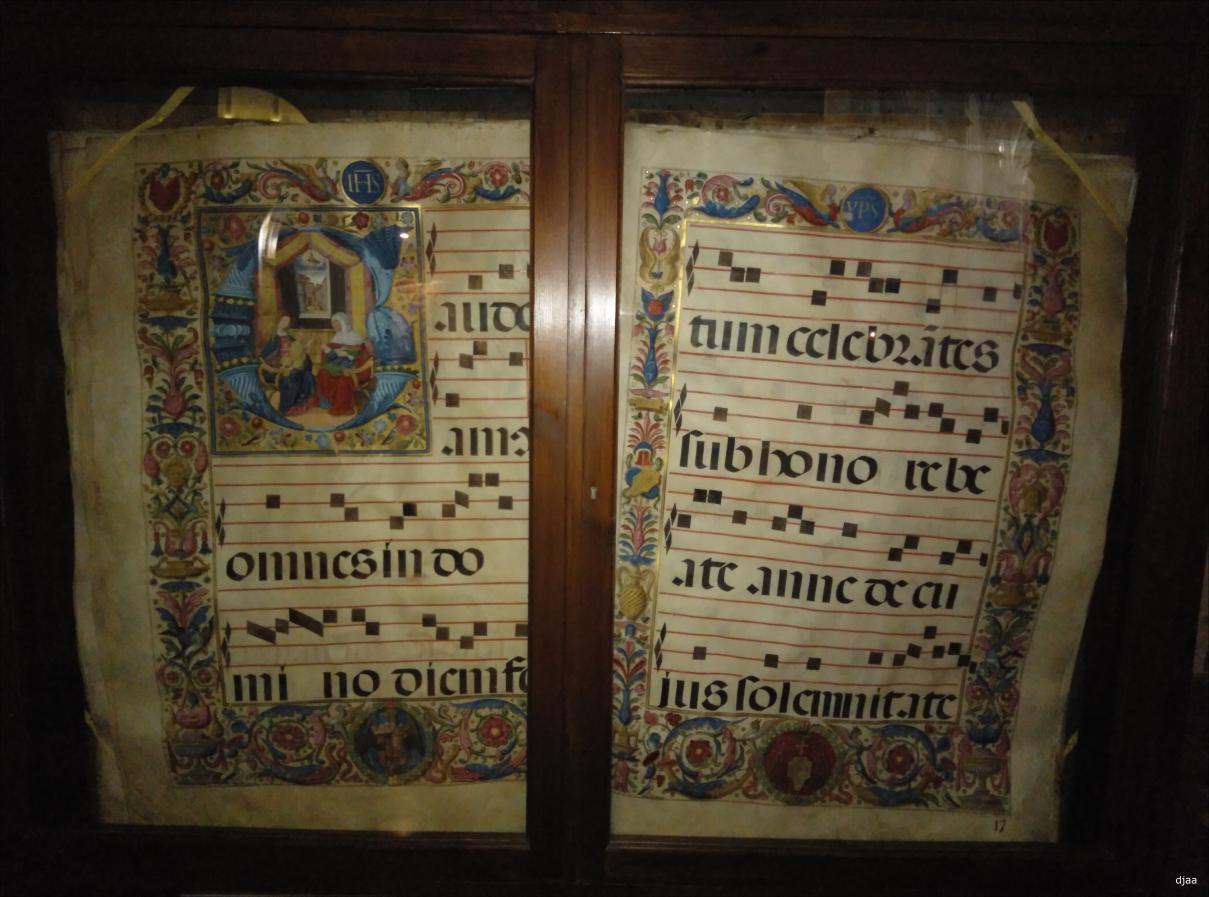 IHS
aude
amus
omnes in do
mi no diem fe
YPS
tum celebrātes
sub hono re be
ate anne de cu
ius solemnitate
17
djaa